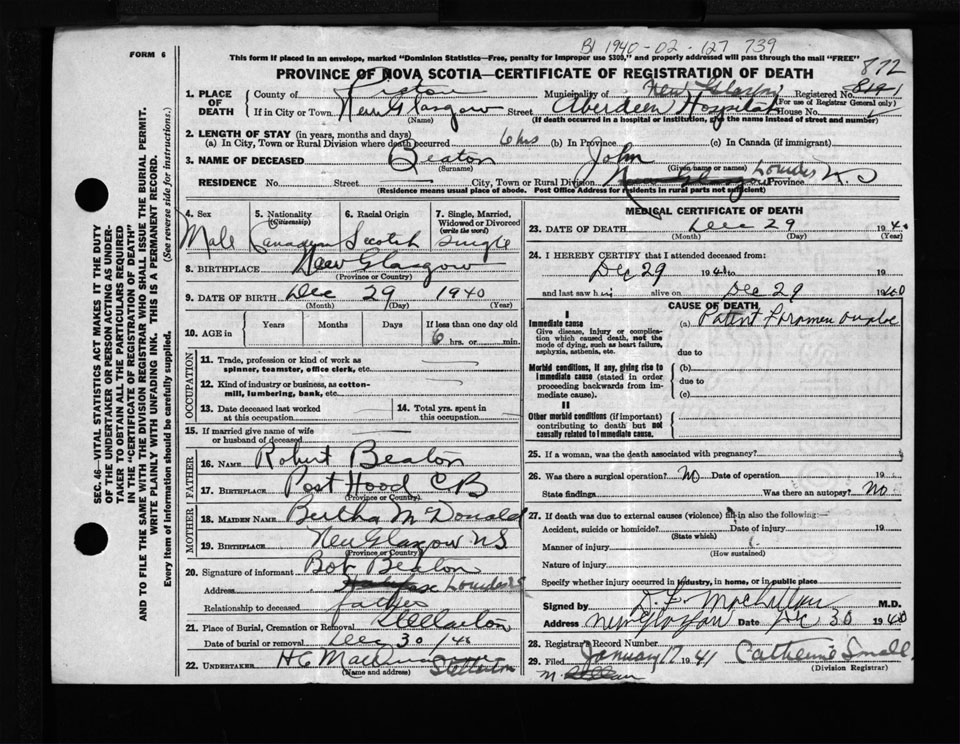 FORM 6
BI 1940-02-127 739
This form if placed in an envelope, marked "Dominion Statistics—Free, penalty for improper use $300," and properly addressed will pass through the mail "FREE"
PROVINCE OF NOVA SCOTIA—CERTIFICATE OF REGISTRATION OF DEATH
872
1. PLACE OF DEATH
County of Pictou Municipality of New Glasgow Registered No.
(For use of Registrar General only)
If in City or Town New Glasgow Street Aberdeen Hospital House No.
(Name) (If death occurred in a hospital or institution, give the name instead of street and number)
2. LENGTH OF STAY (in years, months and days)
(a) In City, Town or Rural Division where death occurred 6 hrs (b) In Province (c) In Canada (if immigrant)
3. NAME OF DECEASED Beaton John
(Surname) (Given name or names)
RESIDENCE No. Street City, Town or Rural Division New Glasgow Lourdes Province N.S
(Residence means usual place of abode. Post Office Address for residents in rural parts not sufficient)
4. Sex
Male
5. Nationality (Citizenship)
Canadian
6. Racial Origin
Scotch
7. Single, Married, Widowed or Divorced (write the word)
Single
8. BIRTHPLACE New Glasgow
(Province or Country)
9. DATE OF BIRTH Dec 29 1940
(Month) (Day) (Year)
10. AGE in Years Months Days If less than one day old
6 hrs. or min.
OCCUPATION
11. Trade, profession or kind of work as spinner, teamster, office clerk, etc.
12. Kind of industry or business, as cotton-mill, lumbering, bank, etc.
13. Date deceased last worked at this occupation
14. Total yrs. spent in this occupation
15. If married give name of wife or husband of deceased
FATHER
16. NAME Robert Beaton
17. BIRTHPLACE Port Hood CB
(Province or Country)
MOTHER
18. MAIDEN NAME Bertha McDonald
19. BIRTHPLACE New Glasgow NS
(Province or Country)
20. Signature of informant Bob Beaton
Address Halifax Lourdes
Relationship to deceased father
21. Place of Burial, Cremation or Removal Stellarton
Date of burial or removal Dec 30 /40
22. UNDERTAKER H C
(Name and address) Stellarton
MEDICAL CERTIFICATE OF DEATH
23. DATE OF DEATH Dec 29 1940
(Month) (Day) (Year)
24. I HEREBY CERTIFY that I attended deceased from:
Dec 29 19 to 19
and last saw him alive on Dec 29 1940
CAUSE OF DEATH
I
Immediate cause
Give disease, injury or complication which caused death, not the mode of dying, such as heart failure, asphyxia, asthenia, etc.
(a) Patent Foramen ovale
due to
Morbid conditions, if any, giving rise to immediate cause (stated in order proceeding backwards from immediate cause).
(b)
due to
(c)
II
Other morbid conditions (if important) contributing to death but not causally related to immediate cause.
25. If a woman, was the death associated with pregnancy?
26. Was there a surgical operation? No Date of operation 19
State findings Was there an autopsy? No
27. If death was due to external causes (violence) fill in also the following:—
Accident, suicide or homicide? Date of injury 19
(State which)
Manner of injury
(How sustained)
Nature of injury
Specify whether injury occurred in industry, in home, or in public place
Signed by M.D.
Address New Glasgow Date Dec 30 1940
28. Registrar's Record Number
29. Filed January 17 1941 Catherine Small
(Division Registrar)
SEC. 46—VITAL STATISTICS ACT MAKES IT THE DUTY
OF THE UNDERTAKER OR PERSON ACTING AS UNDER-
TAKER TO OBTAIN ALL THE PARTICULARS REQUIRED
IN THE "CERTIFICATE OF REGISTRATION OF DEATH"
AND TO FILE THE SAME WITH THE DIVISION REGISTRAR WHO SHALL ISSUE THE BURIAL PERMIT.
WRITE PLAINLY WITH UNFADING INK. THIS IS A PERMANENT RECORD.
Every item of information should be carefully supplied. (See reverse side for instructions.)